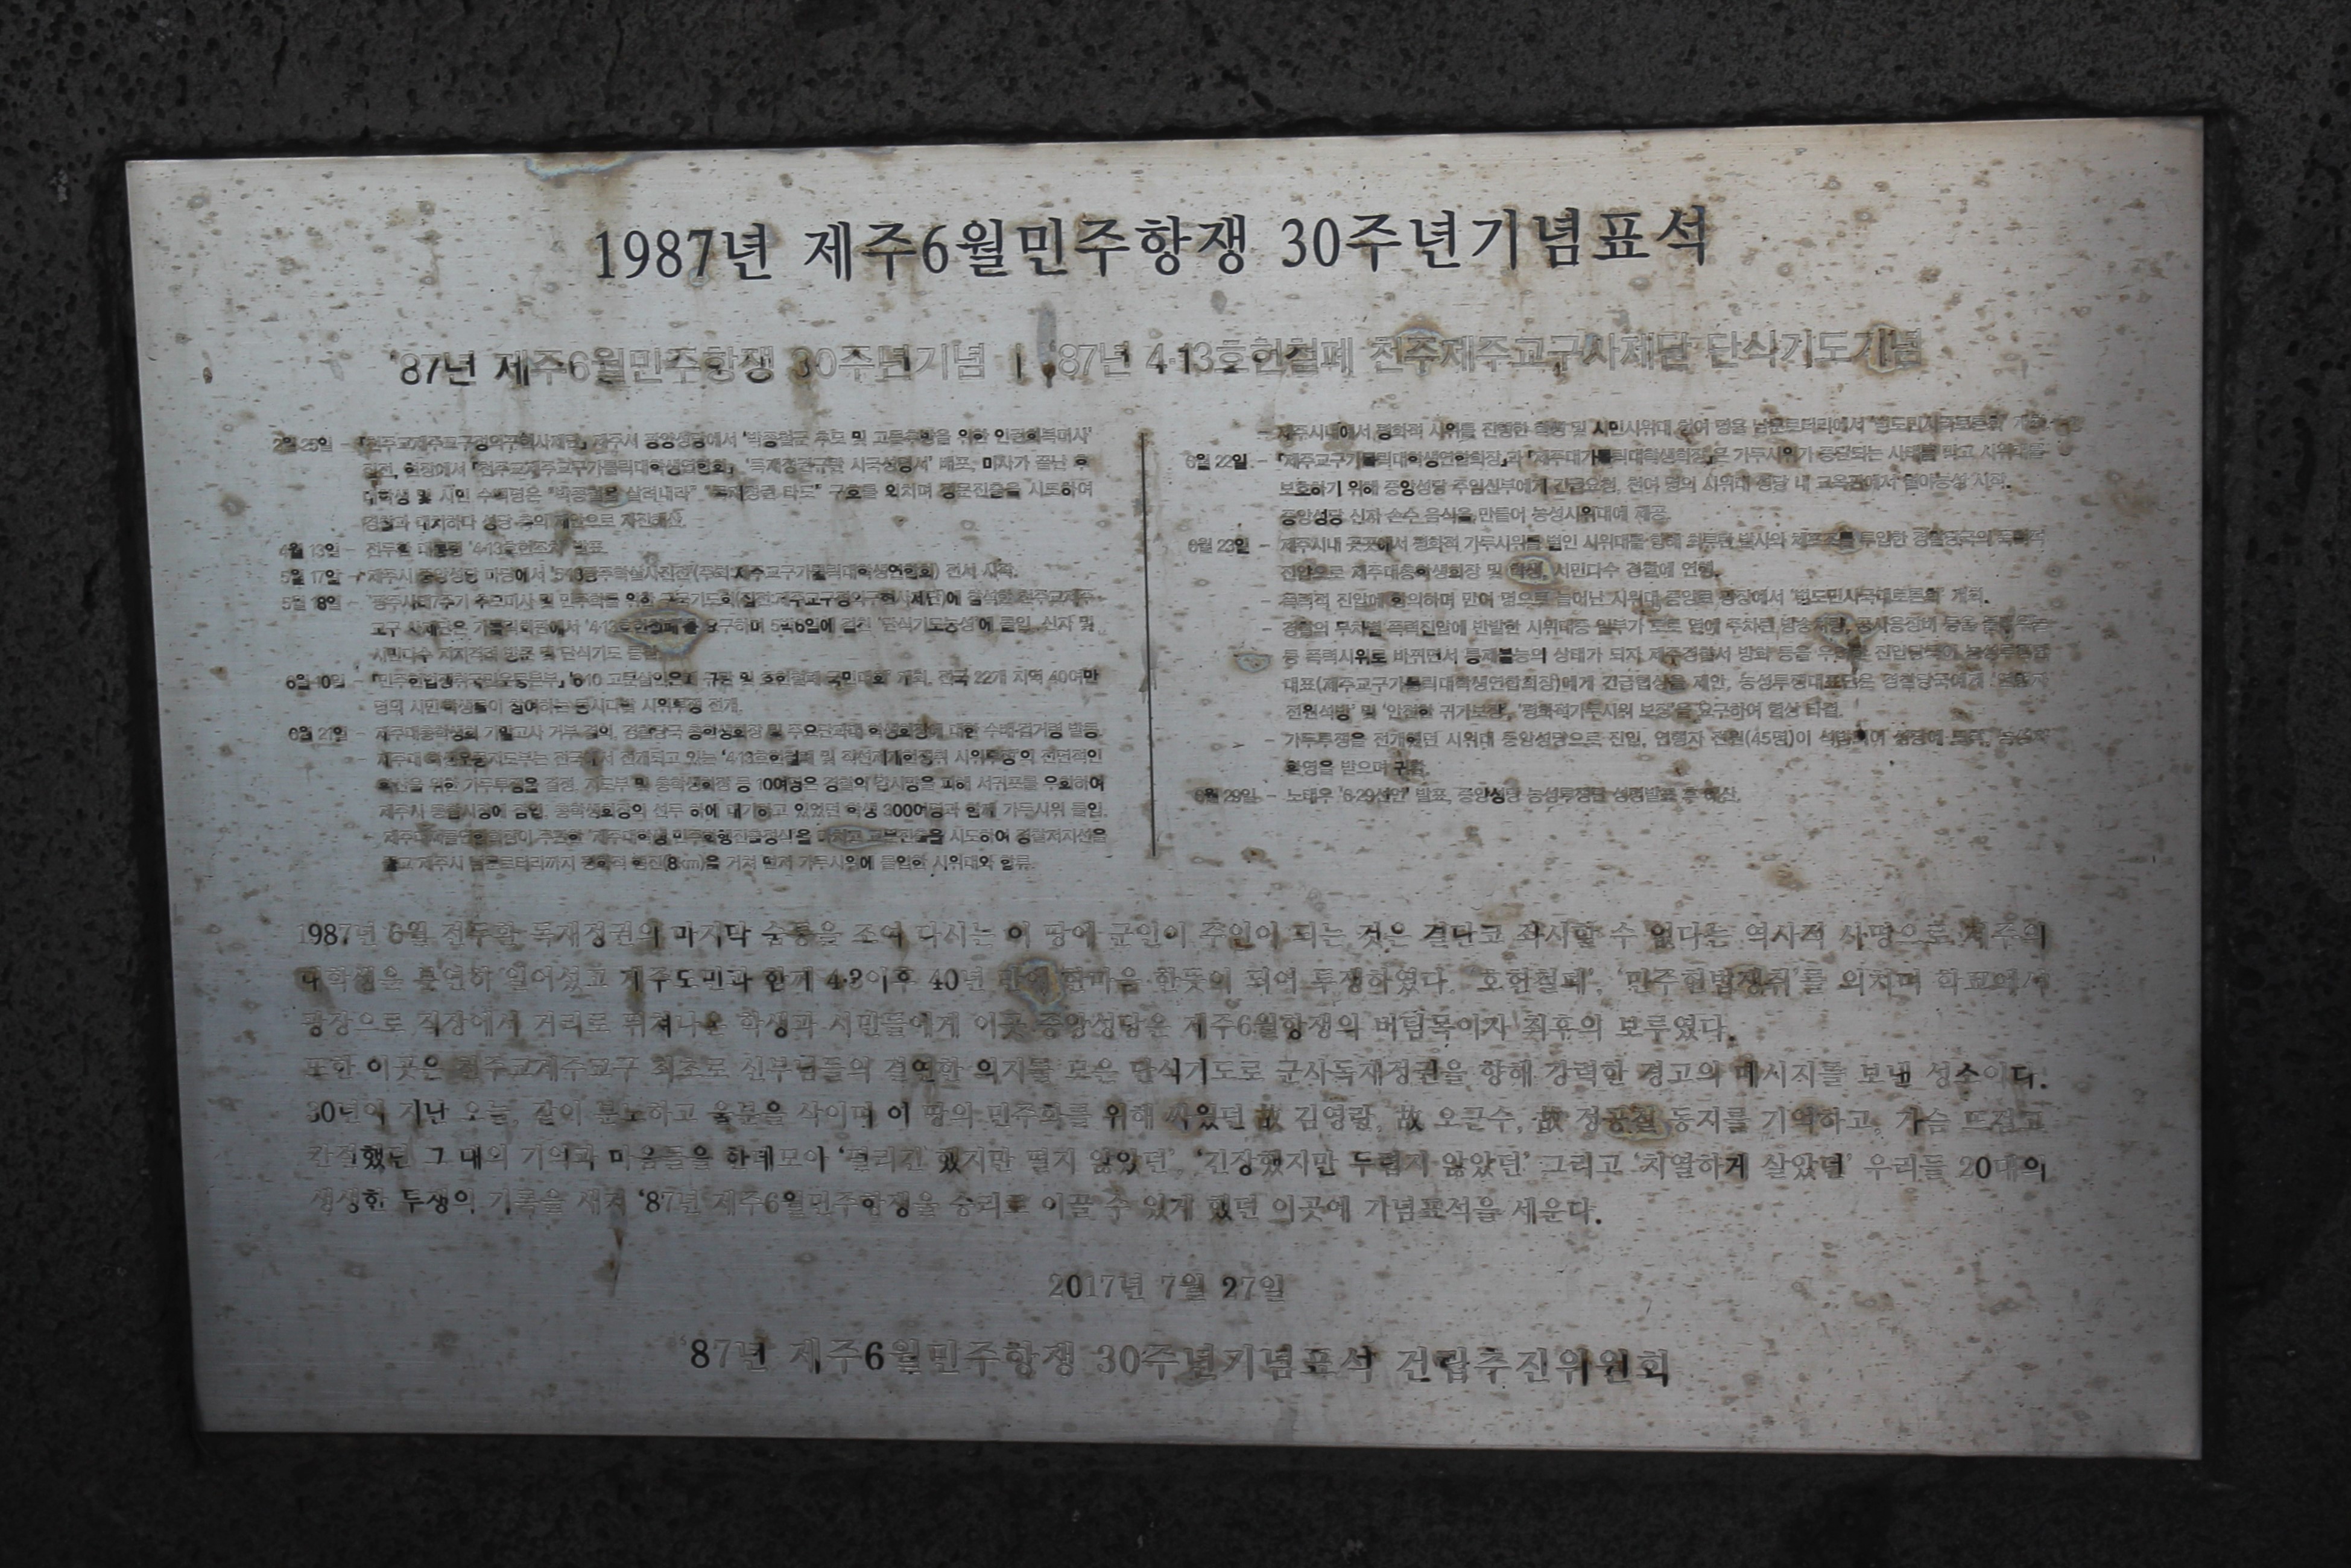 1987년 제주6월민주항쟁 30주년기념표석
'87년 제주6월민주항쟁 30주년기념 | '87년 4·13호헌철폐 천주제주교구사제단 단식기도기념
2월 25일 - 제주시 중앙성당에서 '박종철군 추모 및 고문추방을 위한 인권회복미사'
현장에서 「천주교제주교구가톨릭대학생연합회」 시국성명서' 배포, 미사가 끝난 후
대학생 및 시민 수백명은 "박종철을 살려내라", "독재정권 타도" 구호를 외치며 정문진출을 시도하여
경찰과 대치하다 성당 측의 제안으로 자진해산.
4월 13일 - 전두환 대통령 '4·13호헌조치' 발표.
5월 17일 - 제주시 중앙성당 마당에서 전시 시작.
5월 18일 - 참석한 천주교제주
교구 사제단은 가톨릭회관에서 '4·13호헌철폐'를 요구하며 5박6일에 걸친 '단식기도농성'에 돌입, 신자 및
시민다수 지지격려 방문 및 단식기도 동참.
6월 10일 - 국민대회' 개최, 전국 22개 지역 40여만
명의 시민·학생들이 참여하는 동시다발 시위투쟁 전개.
6월 21일 - 제주대총학생회 기말고사 거부 결의, 경찰당국 총학생회장 및 주요단과대 학생회장에 대한 수배·검거령 발동.
- 제주대 학생운동지도부는 전국에서 전개되고 있는 '4·13호헌철폐 및 직선제개헌쟁취 시위투쟁'의 전면적인
확산을 위한 가두투쟁을 결정, 지도부 및 총학생회장 등 10여명은 경찰의 감시망을 피해 서귀포를 우회하여
제주시 동문시장에 잠입, 총학생회장의 선두 하에 대기하고 있었던 학생 300여명과 함께 가두시위 돌입.
- 마치고 교문진출을 시도하여 경찰저지선을
뚫고 제주시 남문로터리까지 평화적 행진(8km)을 거쳐 먼저 가두시위에 돌입한 시위대와 합류.
- 제주시내에서 평화적 시위를 진행한 학생 및 시민시위대 천여 명을 남문로터리에서 개최.
6월 22일 - 「제주교구가톨릭대학생연합회장」과 「제주대가톨릭대학생회장」은 가두시위가 중단되는 사태를 막고, 시위대를
보호하기 위해 중앙성당 주임신부에게 긴급요청, 천여 명의 시위대 성당 내 교육관에서 철야농성 시작.
중앙성당 신자 손수 음식을 만들어 농성시위대에 제공.
6월 23일 - 제주시내 곳곳에서 평화적 가두시위를 벌인 시위대를 향해 최루탄 발사와 투입한 경찰당국의 폭력적
진압으로 제주대총학생회장 및 학생, 시민다수 경찰에 연행.
- 폭력적 진압에 항의하며 만여 명으로 늘어난 시위대 중앙로 광장에서 '범도민시국대토론회' 개최.
- 경찰의 무차별 폭력진압에 반발한 시위대중 일부가 도로 옆에 주차된 방송차량,
등 폭력시위로 바뀌면서 통제불능의 상태가 되자 제주경찰서 방화 등을 우려한 진압당국이 농성투쟁단
대표(제주교구가톨릭대학생연합회장)에게 긴급협상을 제안, 농성투쟁대표단은 경찰당국에게 '연행자
전원석방' 및 '안전한 귀가보장', '평화적가두시위 보장'을 요구하여 협상 타결.
- 가두투쟁을 전개했던 시위대 중앙성당으로 진입, 연행자 전원(45명)이 석방되어 성당에 도착,
환영을 받으며 귀환.
6월 29일 - 노태우 '6·29선언' 발표, 중앙성당 농성투쟁단 성명발표 후 해산.
1987년 6월 전두환 독재정권의 마지막 숨통을 조여 다시는 이 땅에 군인이 주인이 되는 것은 결단코 좌시할 수 없다는 역사적 사명으로 제주의
대학생은 분연히 일어섰고 제주도민과 함께 4·3이후 40년 만에 한마음 한뜻이 되어 투쟁하였다. '호헌철폐', '민주헌법쟁취'를 외치며 학교에서
광장으로 직장에서 거리로 뛰쳐나온 학생과 시민들에게 이곳 중앙성당은 제주6월항쟁의 버팀목이자 최후의 보루였다.
또한 이곳은 천주교제주교구 최초로 신부님들의 결연한 의지를 모은 단식기도로 군사독재정권을 향해 강력한 경고의 메시지를 보낸 성소이다.
30년이 지난 오늘, 같이 분노하고 울분을 삭이며 이 땅의 민주화를 위해 싸웠던 故 김영랑, 故 오근수, 故 정공철 동지를 기억하고, 가슴 뜨겁고
간절했던 그 때의 기억과 마음들을 한데모아 '떨리긴 했지만 떨지 않았던', '긴장했지만 두렵지 않았던' 그리고 '치열하게 살았던' 우리들 20대의
생생한 투쟁의 기록을 새겨 '87년 제주6월민주항쟁을 승리로 이끌 수 있게 했던 이곳에 기념표석을 세운다.
2017년 7월 27일
'87년 제주6월민주항쟁 30주년기념표석 건립추진위원회